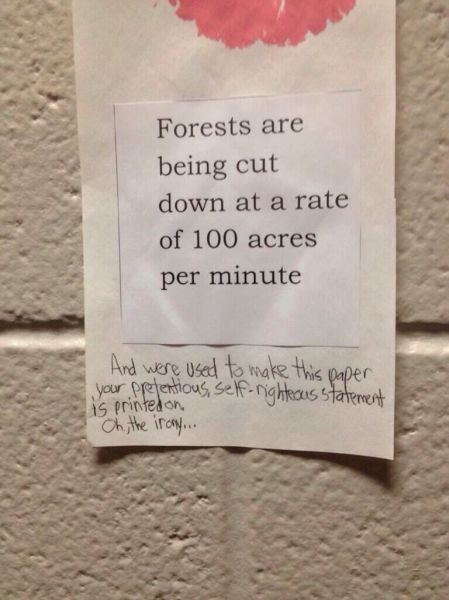 Forests are
being cut
down at a rate
of 100 acres
per minute
And were used to make this paper
your pretentious, self-righteous statement
is printed on.
Oh, the irony...